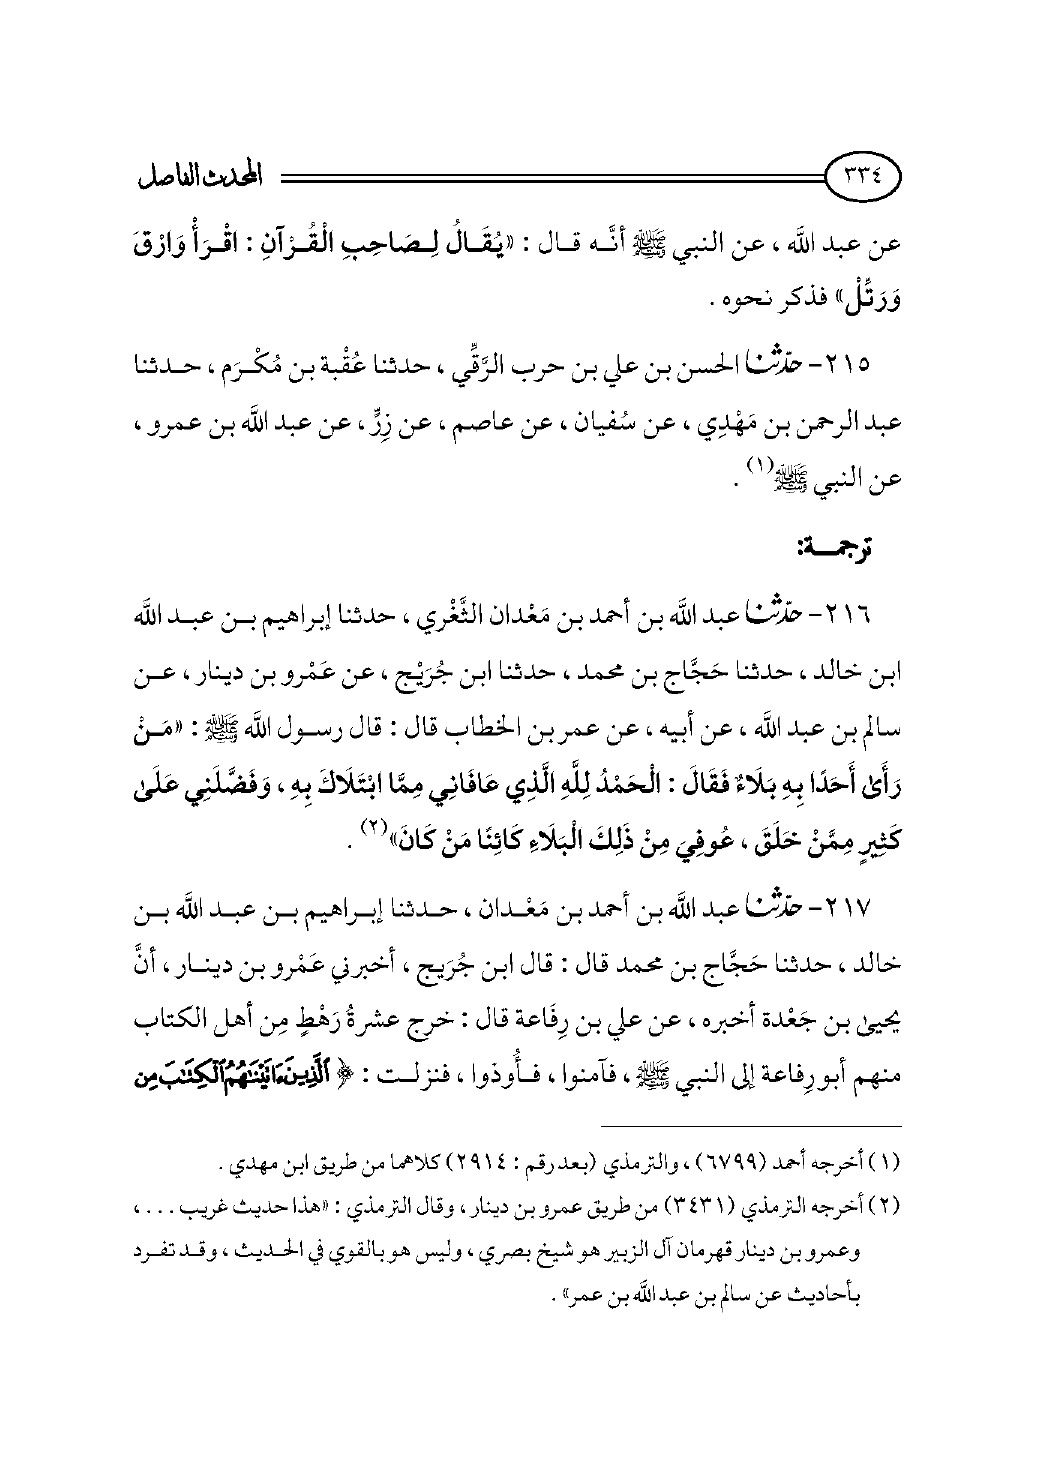 ٣٣٤ المحدث الفاصل
عن عبد الله ، عن النبي ﷺ أنَّـه قـال : «يُقَـالُ لِـصَاحِبِ الْقُـرْآنِ : اقْـرَأْ وَارْقَ
وَرَتِّلْ» فذكر نحوه .
٢١٥- حدّثنا الحسن بن علي بن حرب الرَّقِّي ، حدثنا عُقْبة بن مُكْـرَم ، حـدثنا
عبد الرحمن بن مَهْدِي ، عن سُفيان ، عن عاصم ، عن زِرٍّ ، عن عبد الله بن عمرو ،
عن النبي ﷺ(١) .
ترجمـــة:
٢١٦- حدّثنا عبد الله بن أحمد بن مَعْدان الثَّغْري ، حدثنا إبراهيم بـن عبـد الله
ابن خالد ، حدثنا حَجَّاج بن محمد ، حدثنا ابن جُرَيْج ، عن عَمْرو بن دينار ، عـن
سالم بن عبد الله ، عن أبيه ، عن عمر بن الخطاب قال : قال رسـول الله ﷺ : «مَـنْ
رَأَىٰ أَحَدًا بِهِ بَلَاءٌ فَقَالَ : الْحَمْدُ لِلَّهِ الَّذِي عَافَانِي مِمَّا ابْتَلَاكَ بِهِ ، وَفَضَّلَنِي عَلَىٰ
كَثِيرٍ مِمَّنْ خَلَقَ ، عُوفِيَ مِنْ ذَلِكَ الْبَلَاءِ كَائِنًا مَنْ كَانَ»(٢) .
٢١٧- حدّثنا عبد الله بن أحمد بن مَعْـدان ، حـدثنا إبـراهيم بـن عبـد الله بـن
خالد ، حدثنا حَجَّاج بن محمد قال : قال ابن جُرَيج ، أخبرني عَمْرو بن دينـار ، أنَّ
يحيىٰ بن جَعْدة أخبره ، عن علي بن رِفَاعة قال : خرج عشرةُ رَهْطٍ مِن أهل الكتاب
منهم أبو رِفاعة إلى النبي ﷺ ، فآمنوا ، فـأُوذوا ، فنزلـت : ﴿ ٱلَّذِينَ ءَاتَيْنَٰهُمُ ٱلْكِتَٰبَ مِن
(١) أخرجه أحمد (٦٧٩٩) ، والترمذي (بعد رقم : ٢٩١٤) كلاهما من طريق ابن مهدي .
(٢) أخرجه الترمذي (٣٤٣١) من طريق عمرو بن دينار ، وقال الترمذي : «هذا حديث غريب . . . ،
وعمرو بن دينار قهرمان آل الزبير هو شيخ بصري ، وليس هو بالقوي في الحـديث ، وقـد تفـرد
بأحاديث عن سالم بن عبد الله بن عمر» .